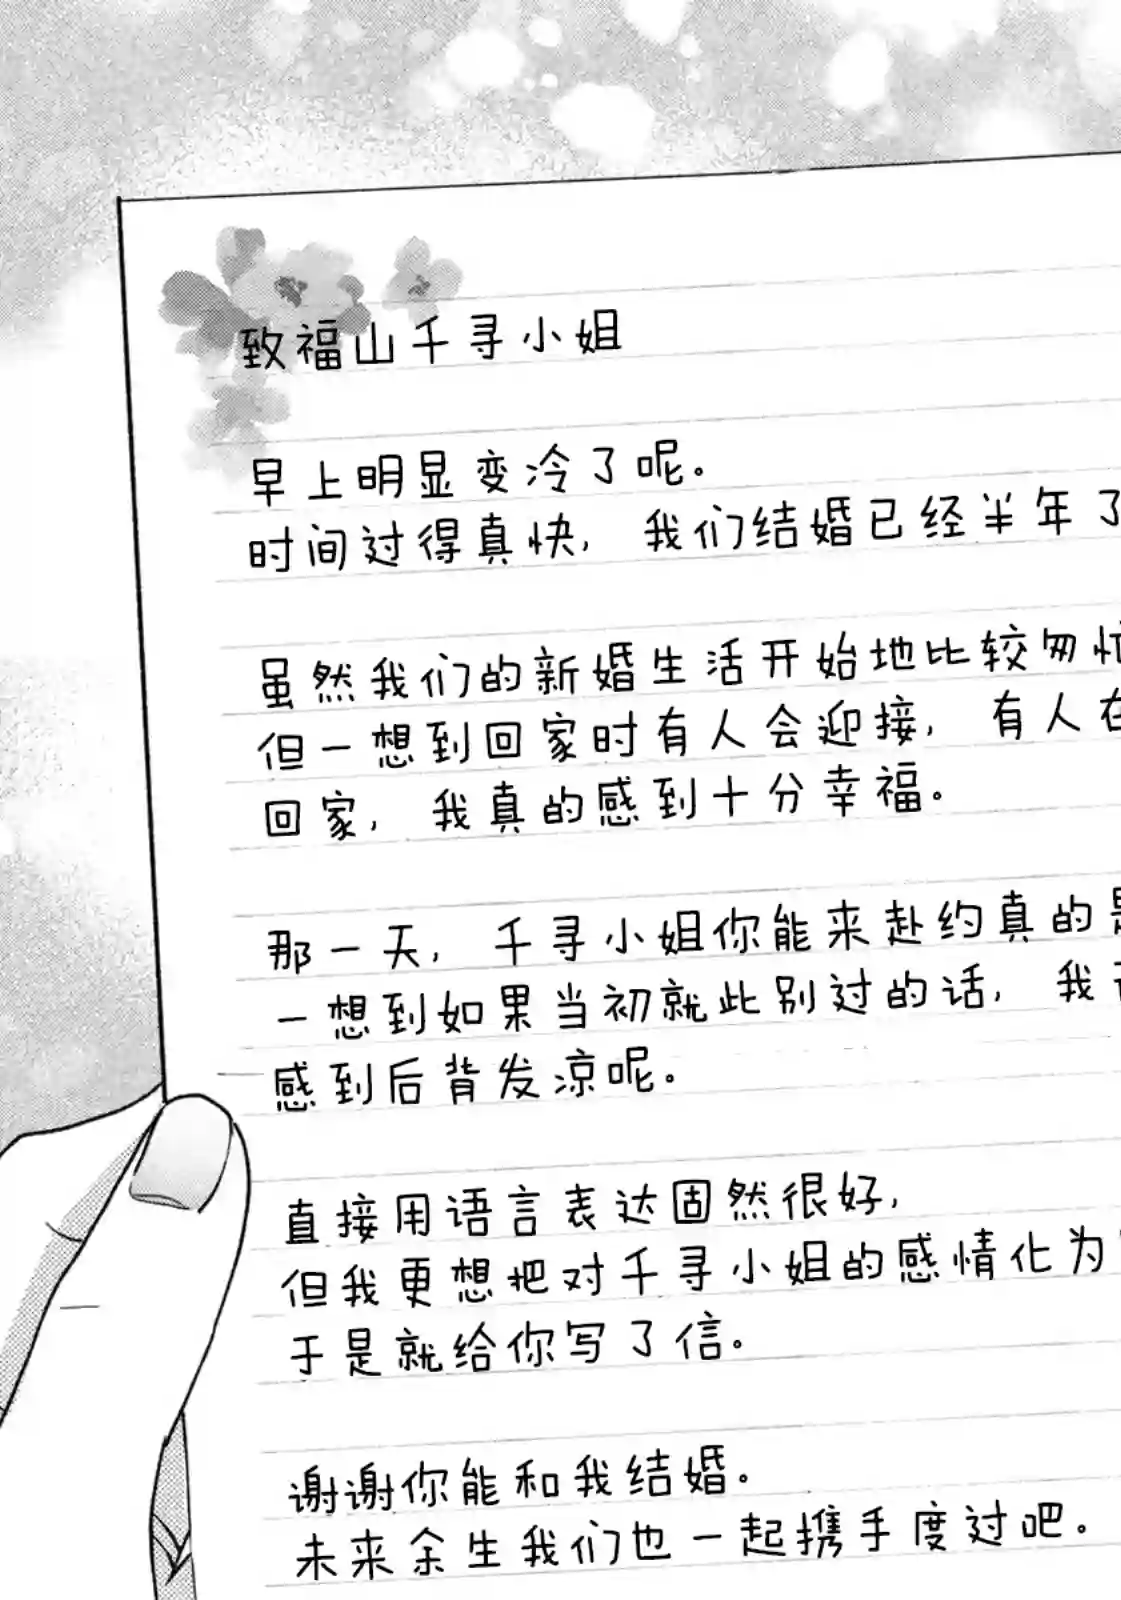 致福山千寻小姐
早上明显变冷了呢。
时间过得真快, 我们结婚已经半年了
虽然我们的新婚生活开始地比较匆忙
但一想到回家时有人会迎接, 有人在
回家, 我真的感到十分幸福。
那一天, 千寻小姐你能来赴约真的是
一想到如果当初就此别过的话, 我
感到后背发凉呢。
直接用语言表达固然很好,
但我更想把对千寻小姐的感情化为
于是就给你写了信。
谢谢你能和我结婚。
未来余生我们也一起携手度过吧。